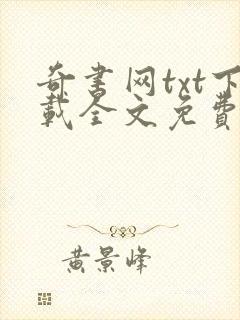 奇书网txt下
载全文免費
黄景峰